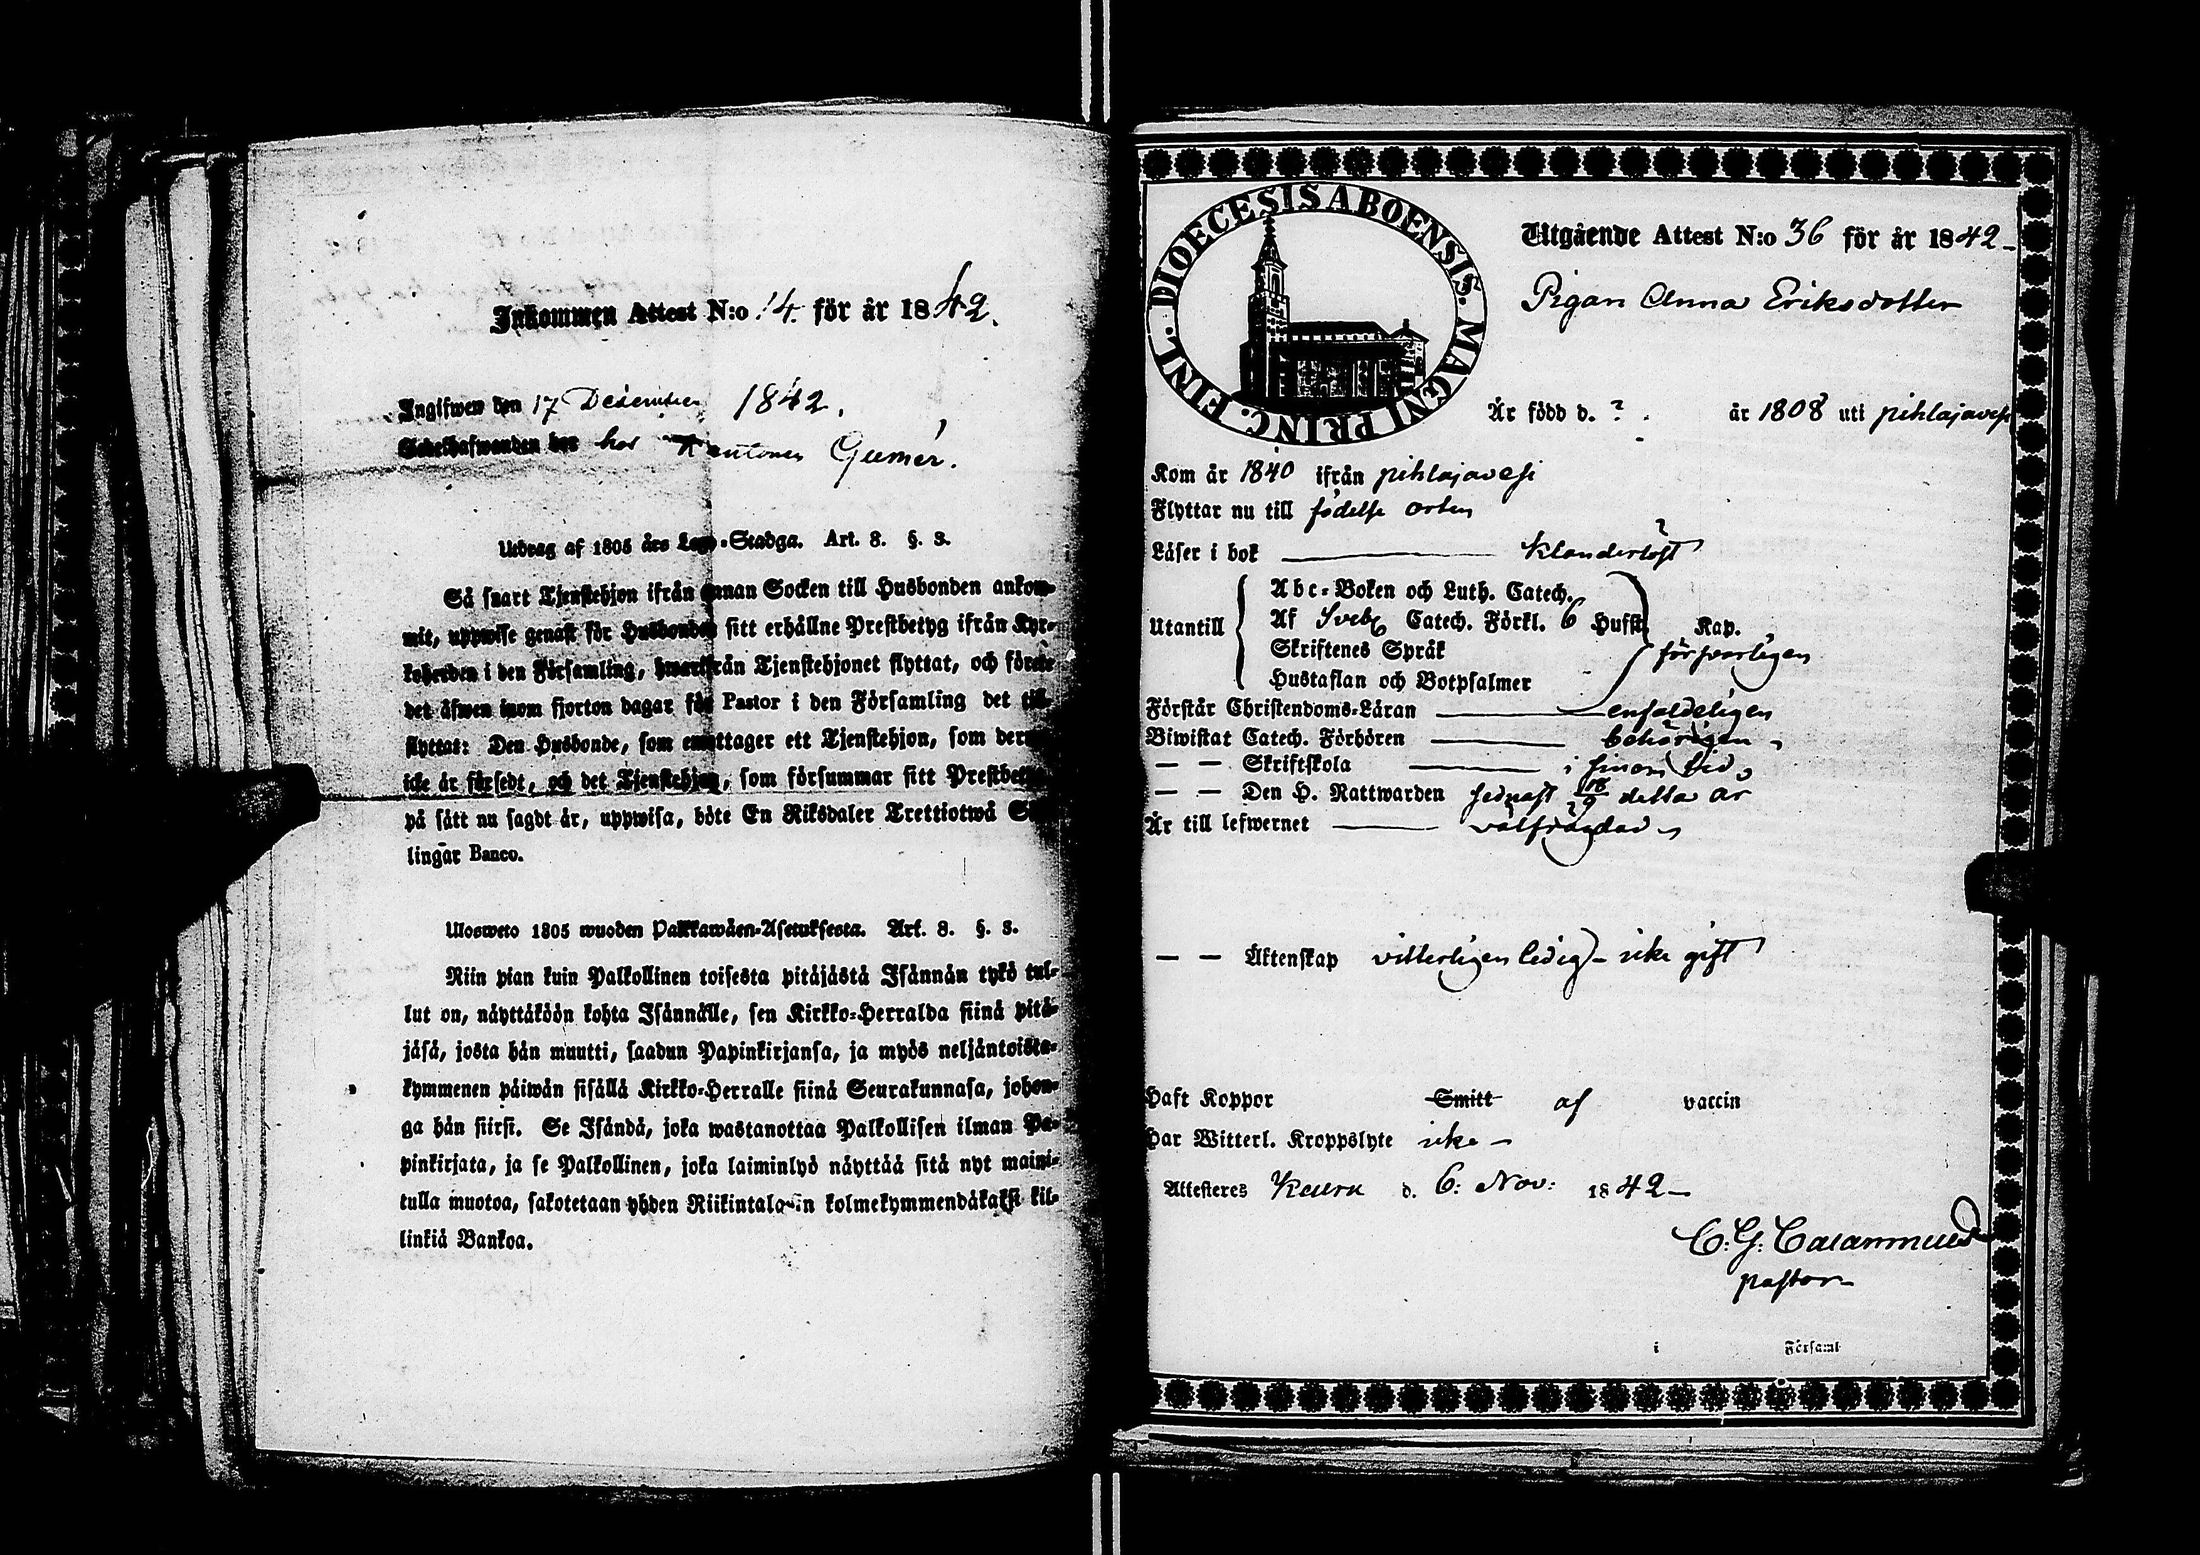 Inkommen Attest N:o 14. för år 1842.
Ingifwen den 17 December 1842.
hos Kantorn Gumér.
Utdrag af 1805 års Lego-Stadga. Art. 8. §. 3.
Så snart Tjenstehjon ifrån annan Socken till Husbonden ankom-
mit, uppwise genast för Husbonden sitt erhållne Prestbetyg ifrån Kyr-
koherden i den Församling, hwarifrån Tjenstehjonet flyttat, och förete
det äfwen inom fjorton dagar för Pastor i den Församling det till-
flyttat: Den Husbonde, som emottager ett Tjenstehjon, som dermed
icke är försedt, och det Tjenstehjon, som försummar sitt Prestbetyg
på sätt nu sagdt är, uppwisa, böte En Riksdaler Trettiotwå Skil-
lingar Banco.
Ulosweto 1805 wuoden Palkkawäen-Asetuksesta. Art. 8. §. 3.
Niin pian kuin Palkollinen toisesta pitäjästä Isännän tykö tul-
lut on, näyttäköön kohta Isännälle, sen Kirkko-Herralda siinä pitä-
jäsä, josta hän muutti, saadun Papinkirjansa, ja myös neljäntoista-
kymmenen päiwän sisällä Kirkko-Herralle siinä Seurakunnasa, johon-
ga hän siirsi. Se Isändä, joka wastanottaa Palkollisen ilman Pa-
pinkirjata, ja se Palkollinen, joka laiminlyö näyttää sitä nyt maini-
tulla muotoa, sakotetaan yhden Riikintalarin kolmekymmendäkaksi kil-
linkiä Bankoa.
FINL. DIOECESIS ABOENSIS. MAGNI PRINC.
Utgående Attest N:o 36 för år 1842
Pigan Anna Eriksdotter
Är född d. ? år 1808 uti pihlajavesi
Kom år 1840 ifrån pihlajavesi
Flyttar nu till födelse orten
Läser i bok klanderlöst
Utantill
Abc-Boken och Luth. Catech.
Af Sveb. Catech. Förkl. 6 Hufst. Kap.
Skriftenes Språk försvarligen
Hustaflan och Botpsalmer
Förstår Christendoms-Läran enfaldeligen
Biwistat Catech. Förhören behörigen
— — Skriftskola i sinom tid
— — Den H. Nattwarden sednast 18/9 detta år
Är till lefwernet välfrägdad
— — Äktenskap vitterligen ledig – icke gift
Haft Koppor Smitt af vaccin
Har Witterl. Kroppslyte icke –
Attesteres Keuru d. 6: Nov: 1842 –
C: G: Calamnius
pastor
i Församl